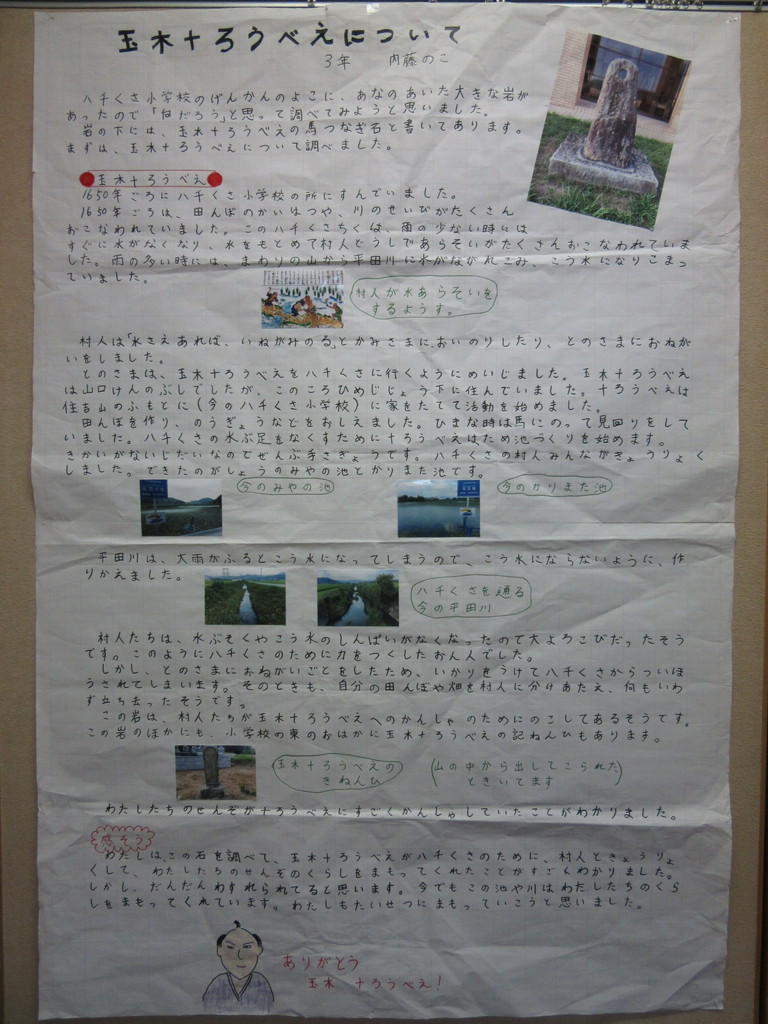 玉木十ろうべえについて
3年 内藤のこ
八千くさ小学校のげんかんのよこに、あなのあいた大きな岩が
あったので「何だろう」と思って調べてみようと思いました。
岩の下には、玉木十ろうべえの馬つなぎ石と書いてあります。
まずは、玉木十ろうべえについて調べました。
玉木十ろうべえ
1650年ごろに八千くさ小学校の所にすんでいました。
1650年ごろは、田んぼのかいはつや、川のせいびがたくさん
おこなわれていました。この八千くさちくは、雨の少ない時には
すぐに水がなくなり、水をもとめて村人どうしであらそいがたくさんおこなわれていま
した。雨の多い時には、まわりの山から平田川に水がながれこみ、こう水になりこまっ
ていました。
村人が水あらそいを
するようす。
村人は「水さえあれば、いねがみのる」とかみさまにおいのりしたり、とのさまにおねが
いをしました。
とのさまは、玉木十ろうべえを八千くさに行くようにめいじました。玉木十ろうべえ
は山口けんのぶしでしたが、このころひめじじょう下に住んでいました。十ろうべえは
住吉山のふもとに(今の八千くさ小学校)に家をたてて活動を始めました。
田んぼを作り、のうぎょうなどをおしえました。ひまな時は馬にのって見回りをして
いました。八千くさの水ぶ足をなくすために十ろうべえはため池づくりを始めます。
きかいがないじだいなのでぜんぶ手さぎょうです。八千くさの村人みんながきょうりょく
しました。できたのがしょうのみやの池とかりまた池です。
今のみやの池
今のかりまた池
平田川は、大雨がふるとこう水になってしまうので、こう水にならないように、作
りかえました。
八千くさを通る
今の平田川
村人たちは、水ぶそくやこう水のしんぱいがなくなったので大よろこびだったそう
です。このように八千くさのために力をつくしたおん人でした。
しかし、とのさまにおねがいごとをしたため、いかりをうけて八千くさからついほ
うされてしまいます。そのときも、自分の田んぼや畑を村人に分けあたえ、何もいわ
ず立ち去ったそうです。
この岩は、村人たちが玉木十ろうべえへのかんしゃのためにのこしてあるそうです。
この岩のほかにも、小学校の東のおはかに玉木十ろうべえの記ねんひもあります。
玉木十ろうべえの
きねんひ
(山の中から出してこられた
ときいてます)
わたしたちのせんぞが十ろうべえにすごくかんしゃしていたことがわかりました。
感そう
わたしは、この石を調べて、玉木十ろうべえが八千くさのために、村人ときょうりょ
くして、わたしたちのせんぞのくらしをまもってくれたことがすごくわかりました。
しかし、だんだんわすれられてると思います。今でもこの池や川はわたしたちのくら
しをまもってくれています。わたしもたいせつにまもっていこうと思いました。
ありがとう
玉木 十ろうべえ!